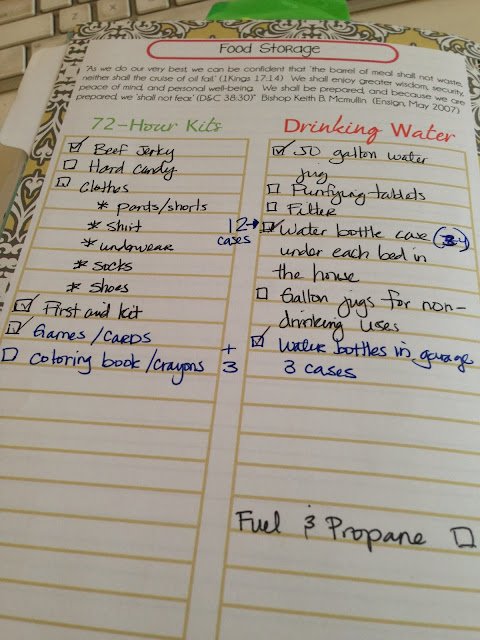 Food Storage
"As we do our very best, we can be confident that 'the barrel of meal shall not waste,
neither shall the cruse of oil fail.' (1Kings 17:14) We shall enjoy greater wisdom, security,
peace of mind, and personal well-being. We shall be prepared, and because we are
prepared, we 'shall not fear.' (D&C 38:30)" Bishop Keith B. Mcmullin (Ensign, May 2007)
72-Hour Kits
Beef Jerky
Hard candy
Clothes
* pants/shorts
* shirt
* underwear
* socks
* shoes
First and kit
Games/cards
Coloring book/crayons
Drinking Water
50 gallon water
jug
Purifying tablets
Filter
12→
cases
Water bottle case (4)
under each bed in
the house
Gallon jugs for non-
drinking uses
+
3
Water bottles in garage
3 cases
Fuel & Propane